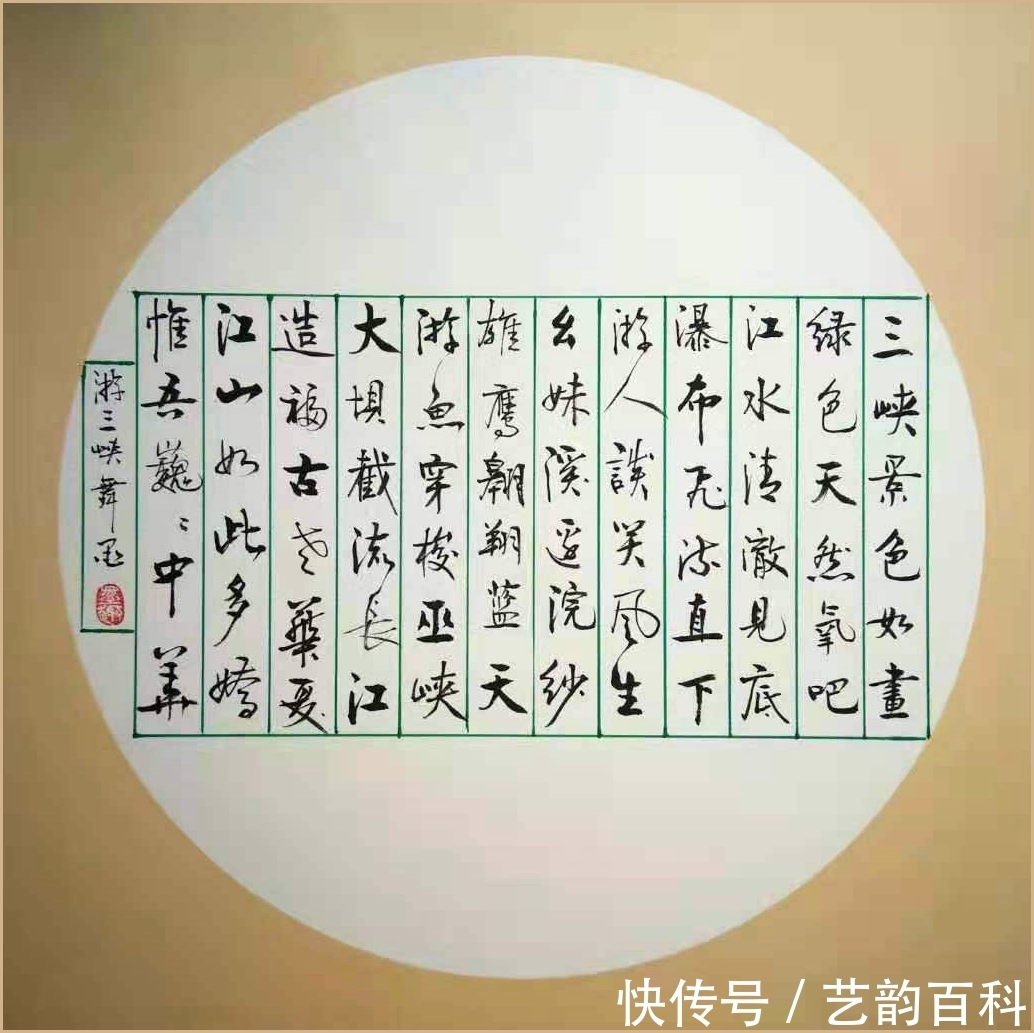 三峡景色如畫
绿色天然氧吧
江水清澈見底
瀑布飛流直下
游人談笑风生
幺妹溪边浣纱
雄鹰翱翔蓝天
游魚穿梭巫峡
大坝截流長江
造福古老華夏
江山如此多嬌
惟吾巍〻中華
游三峡舞墨
快传号 / 艺韵百科